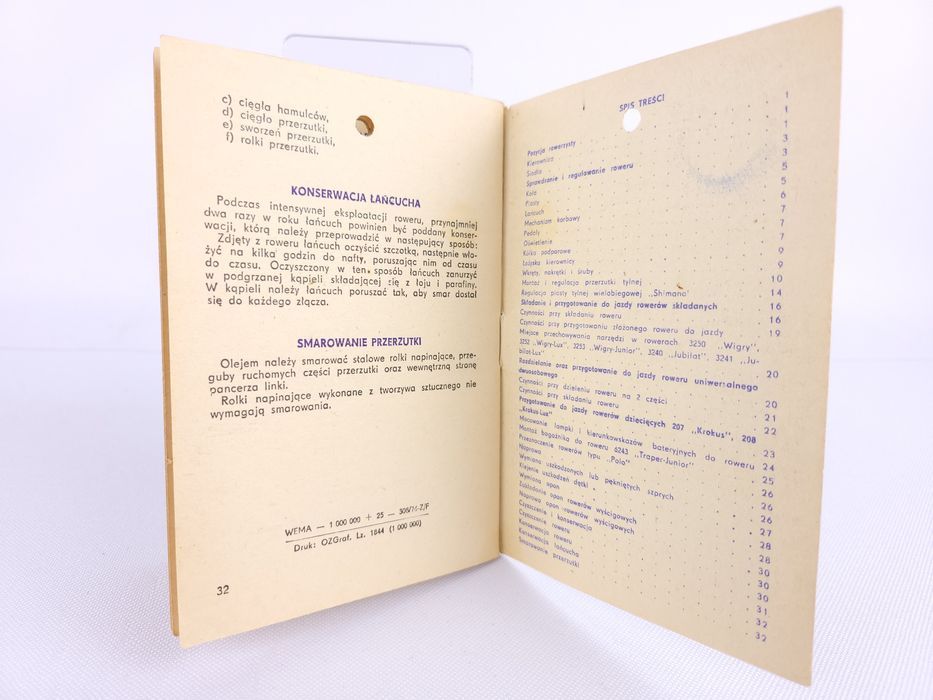 c) cięgła hamulców,
d) cięgło przerzutki,
e) sworzeń przerzutki,
f) rolki przerzutki.
KONSERWACJA ŁAŃCUCHA
Podczas intensywnej eksploatacji roweru, przynajmniej
dwa razy w roku łańcuch powinien być poddany konser-
wacji, którą należy przeprowadzić w następujący sposób:
Zdjęty z roweru łańcuch oczyścić szczotką, następnie wło-
żyć na kilka godzin do nafty, poruszając nim od czasu
do czasu. Oczyszczony w ten sposób łańcuch zanurzyć
w podgrzanej kąpieli składającej się z łoju i parafiny.
W kąpieli należy łańcuch poruszać tak, aby smar dostał
się do każdego złącza.
SMAROWANIE PRZERZUTKI
Olejem należy smarować stalowe rolki napinające, prze-
guby ruchomych części przerzutki oraz wewnętrzną stronę
pancerza linki.
Rolki napinające wykonane z tworzywa sztucznego nie
wymagają smarowania.
WEMA — 1 000 000 + 25 —
Druk: OZGraf. Lz. 1844 (1 000 000)
32
SPIS TREŚCI
Pozycja rowerzysty 1
Kierownica 1
Siodło 1
Sprawdzanie i regulowanie roweru 3
Koła 3
Piasty 5
Łańcuch 5
Mechanizm korbowy 6
Pedały 7
Oświetlenie 7
Kółka podporowe 7
Łożyska kierownicy 9
Wkręty, nakrętki i śruby 9
Montaż i regulacja przerzutki tylnej 10
Regulacja piasty tylnej wielobiegowej „Shimano" 14
Składanie i przygotowanie do jazdy rowerów składanych 16
Czynności przy składaniu roweru 16
Czynności przy przygotowaniu złożonego roweru do jazdy 19
Miejsce przechowywania narzędzi w rowerach 3250 „Wigry",
3252 „Wigry-Lux", 3253 „Wigry-Junior", 3240 „Jubilat", 3241 „Ju-
bilat-Lux" 20
Rozdzielanie oraz przygotowanie do jazdy roweru uniwersalnego
dwuosobowego 20
Czynności przy dzieleniu roweru na 2 części 21
Czynności przy składaniu roweru 22
Przygotowanie do jazdy rowerów dziecięcych 207 „Krokus", 208
„Krokus-Lux" 23
Mocowanie lampki i kierunkowskazów bateryjnych do roweru 24
Montaż bagażnika do roweru 6243 „Traper-Junior" 25
Przeznaczenie rowerów typu „Polo" 26
Naprawa 26
Wymiana uszkodzonych lub pękniętych szprych 26
Klejenie uszkodzeń dętki 27
Wymiana opon 28
Zakładanie opon rowerów wyścigowych 28
Naprawa opon rowerów wyścigowych 30
Czyszczenie i konserwacja 30
Czyszczenie roweru 30
Konserwacja roweru 31
Konserwacja łańcucha 32
Smarowanie przerzutki 32